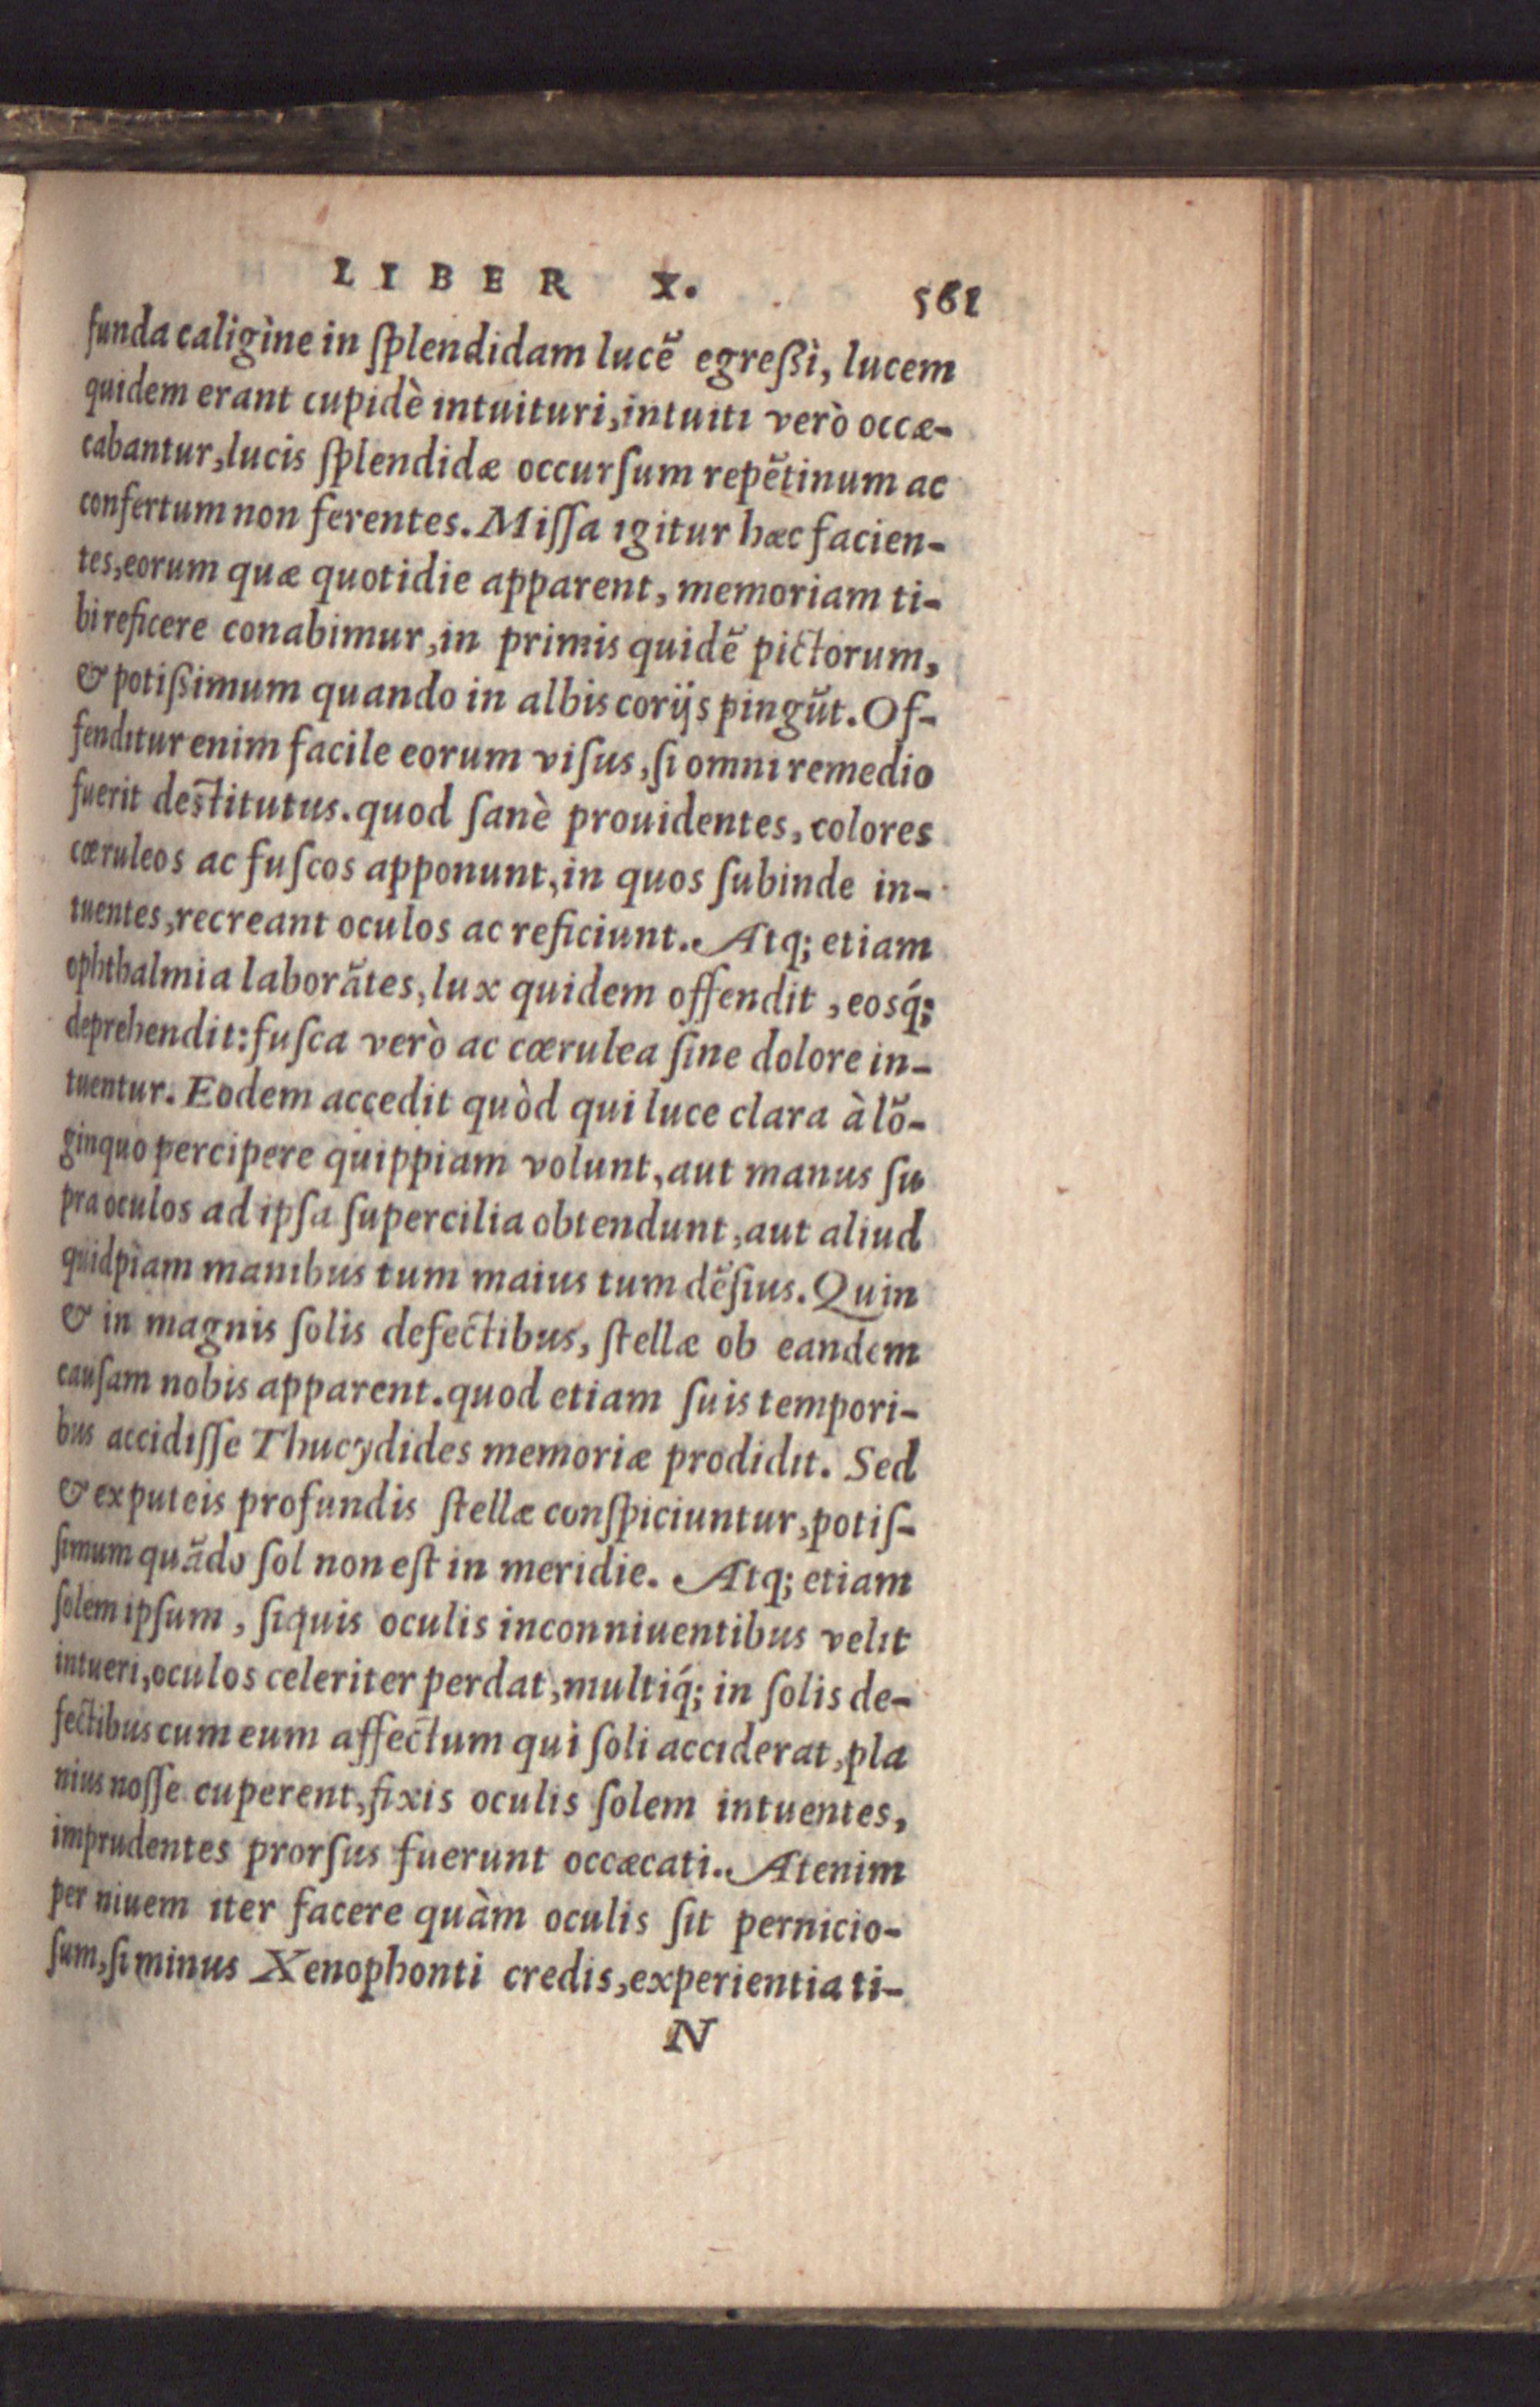 LIBER X. 561
funda caligine in ſplendidam lucẽ egreßi, lucem
quidem erant cupidè intuituri, intuiti verò occæ-
cabantur, lucis ſplendidæ occurſum repẽtinum ac
confertum non ferentes. Miſſa igitur hæc facien-
tes, eorum quæ quotidie apparent, memoriam ti-
bi reficere conabimur, in primis quidẽ pictorum,
& potißimum quando in albis corijs pingũt. Of-
fenditur enim facile eorum viſus, ſi omni remedio
fuerit deſtitutus. quod ſanè prouidentes, colores
cœruleos ac fuſcos apponunt, in quos ſubinde in-
tuentes, recreant oculos ac reficiunt. Atq; etiam
ophthalmia laborãtes, lux quidem offendit, eosq́;
deprehendit: fuſca verò ac cœrulea ſine dolore in-
tuentur. Eodem accedit quòd qui luce clara à lõ-
ginquo percipere quippiam volunt, aut manus ſu
pra oculos ad ipſa ſupercilia obtendunt, aut aliud
quidpiam manibus tum maius tum dẽſius. Quin
& in magnis ſolis defectibus, ſtellæ ob eandem
cauſam nobis apparent. quod etiam ſuis tempori-
bus accidiſſe Thucydides memoriæ prodidit. Sed
& ex puteis profundis ſtellæ conſpiciuntur, potiſ-
ſimum quãdo ſol non eſt in meridie. Atq; etiam
ſolem ipſum, ſiquis oculis inconniuentibus velit
intueri, oculos celeriter perdat, multiq́; in ſolis de-
fectibus cum eum affectum qui ſoli acciderat, pla
nius noſſe cuperent, fixis oculis ſolem intuentes,
imprudentes prorſus fuerunt occæcati. Atenim
per niuem iter facere quàm oculis ſit pernicio-
ſum, ſi minus Xenophonti credis, experientia ti-
N